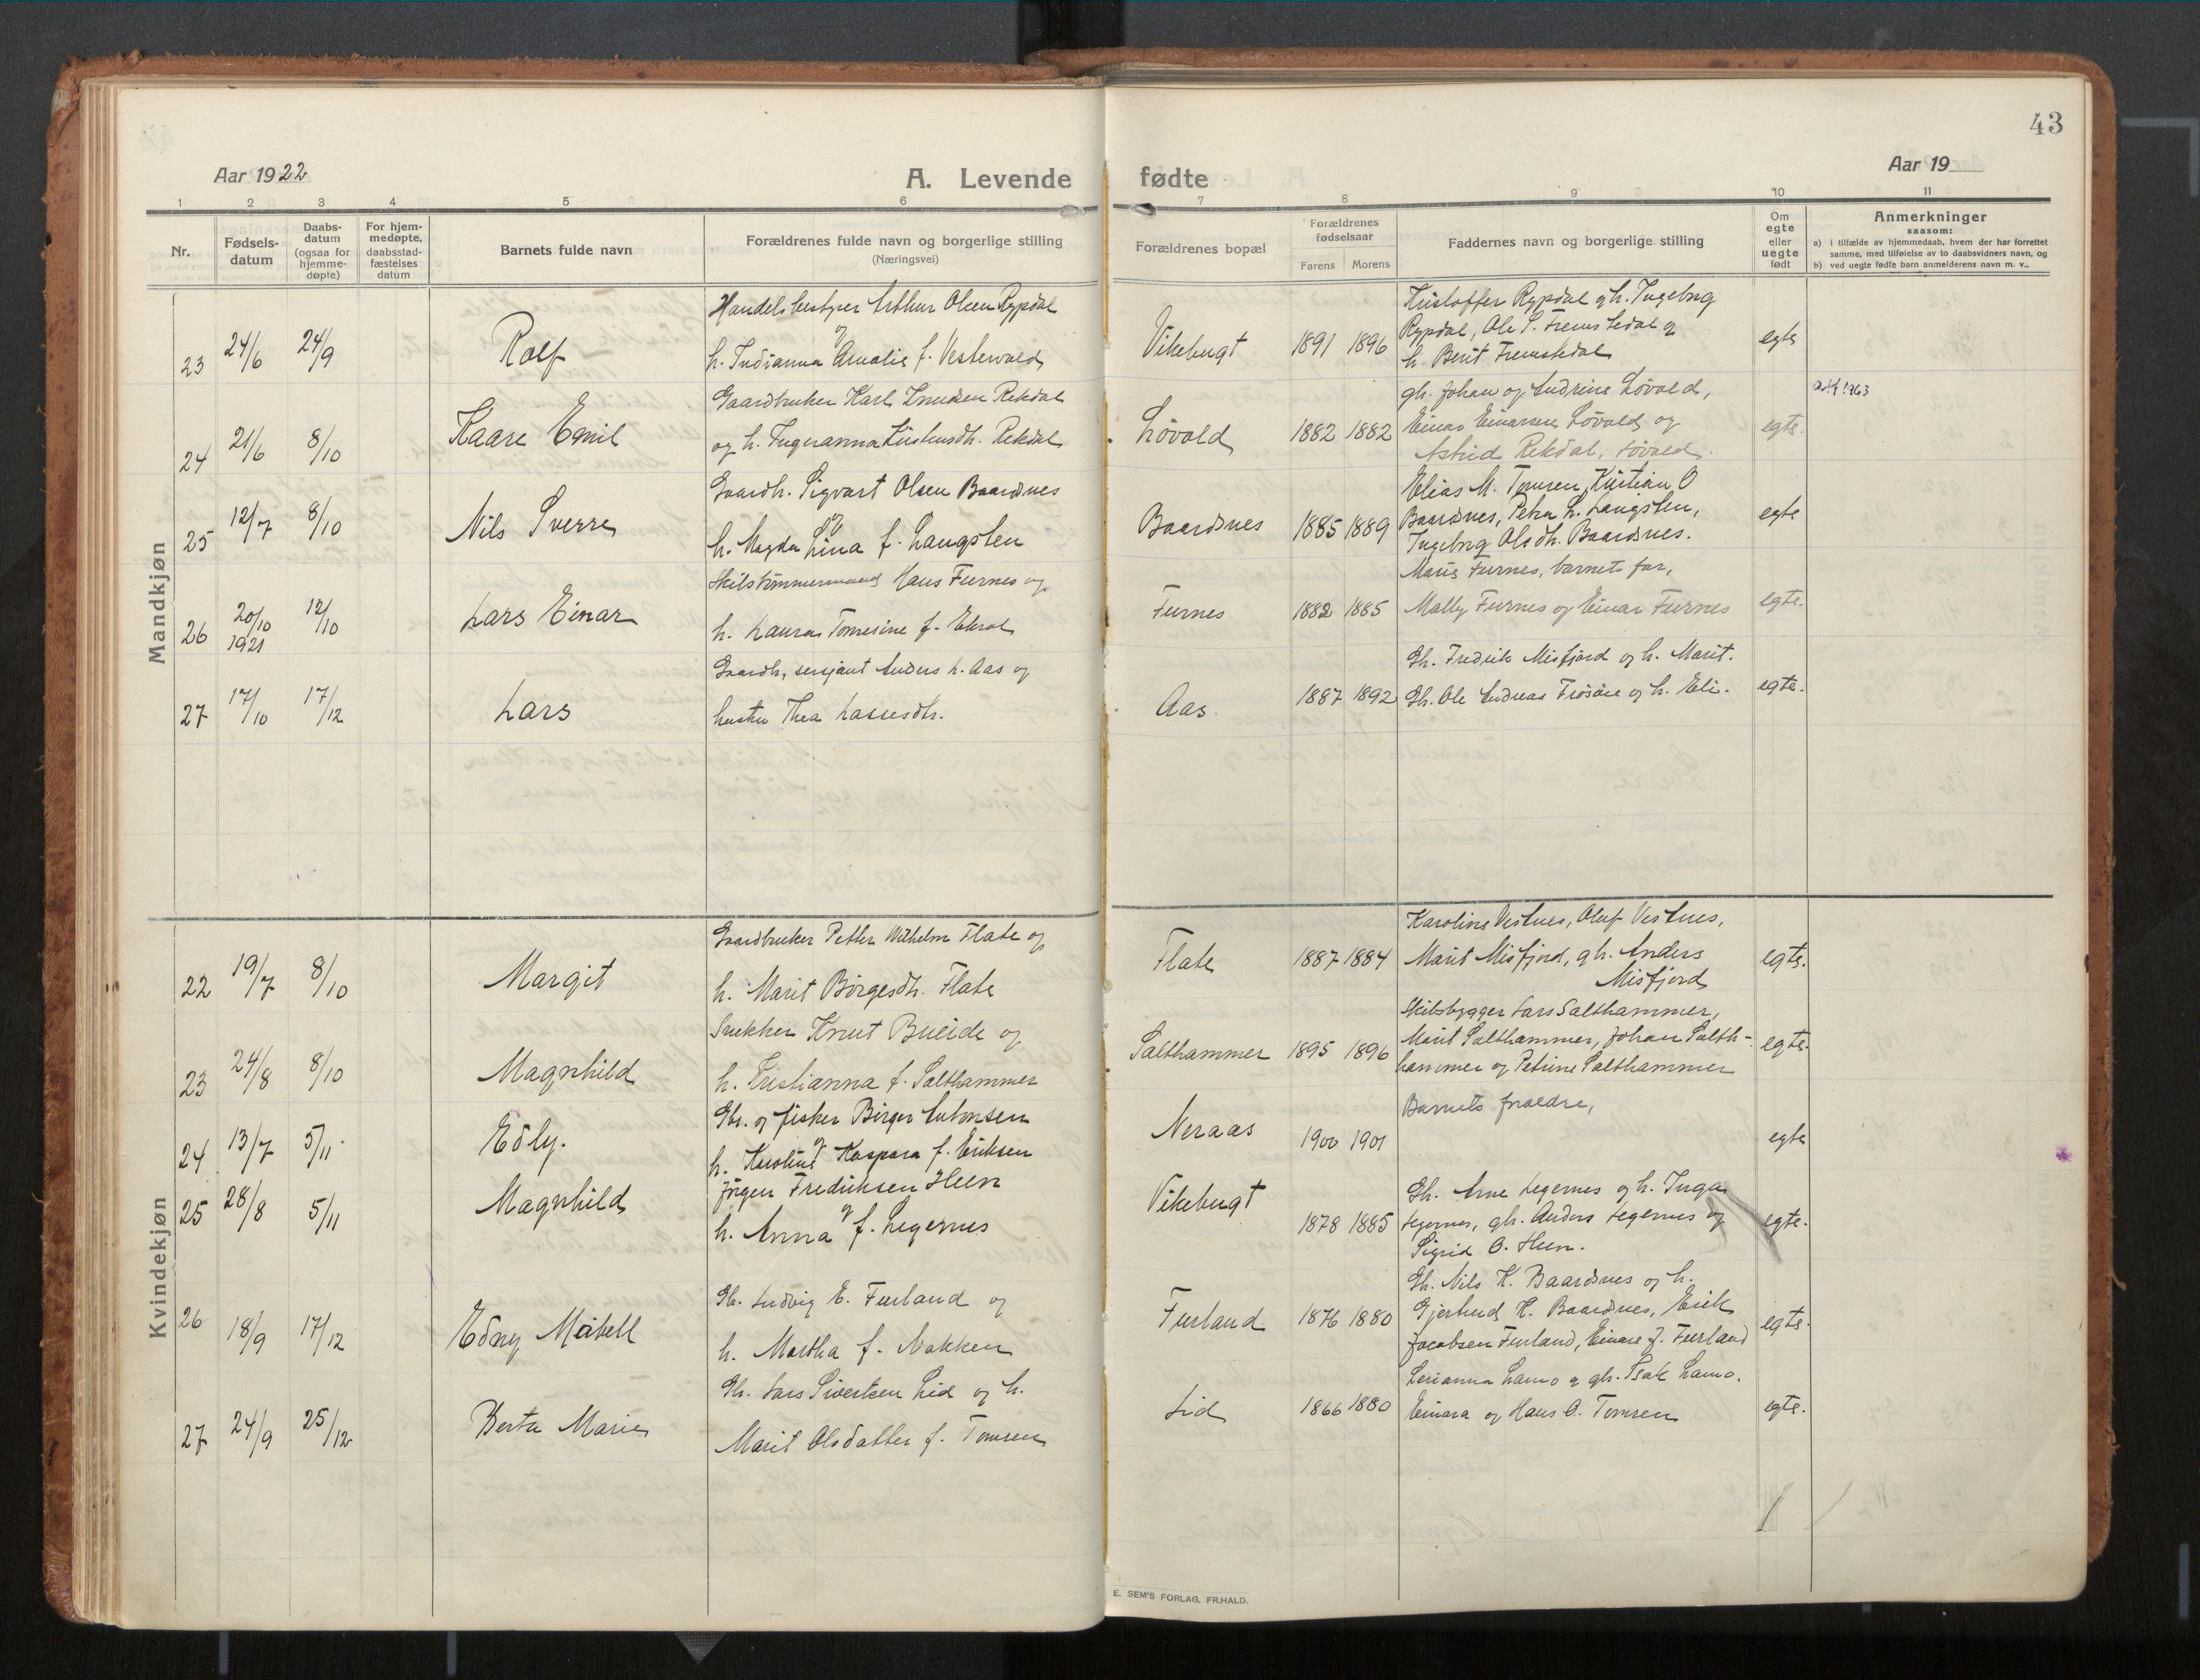 43
Aar 1922
A. Levende fødte
Aar 19
1 2 3 4 5 6 7 8 9 10 11
Nr.
Fødsels-
datum
Daabs-
datum
(ogsaa for
hjemme-
døpte)
For hjem-
medøpte,
daabsstad-
fæstelses
datum
Barnets fulde navn
Forældrenes fulde navn og borgerlige stilling
(Næringsvei)
Forældrenes bopæl
Forældrenes
fødselsaar
Farens Morens
Faddernes navn og borgerlige stilling
Om
egte
eller
uegte
født
Anmerkninger
saasom:
a) i tilfælde av hjemmedaab, hvem der har forrettet
samme, med tilføielse av to daabsvidners navn, og
b) ved uegte fødte barn anmelderens navn m. v..
Mandkjøn
23 24/6 24/9 Rolf
Handelsbestyrer Arthur Olsen Rypdal
og
h. Indianna Amalie f. Vestervold
Vikebugt 1891 1896
Kristoffer Rypdal gh. Ingebrg
Rypdal, Ole S. Fremstedal og
h. Berit Fremstedal
egte
24 21/6 8/10 Kaare Emil
Gaardbruker Karl Knudsen Rekdal
og h. Ingeranna Kristensdh. Rekdal
Løvold 1882 1882
gh. Johan og Andrine Løvold,
Einar Einarsen Løvold og
Astrid Rekdal, Løvold.
egte.
1963
25 12/7 8/10 Nils Sverre
Gaardb. Sigvart Olsen Baardsnes
og
h. Magda Lina f. Langsten
Baardsnes 1885 1889
Elias M. Tomren, Kristian O
Baardsnes, Petra L. Langsten,
Ingebrg Olsdh. Baardsnes.
egte
26 20/10 1921 12/10 Lars Einar
Skibstømmermand Hans Furnes og
h. Laura Tomesine f. Ekrol
Furnes 1882 1885
Marie Furnes, barnets far,
Mally Furnes og Einar Furnes
egte.
27 17/10 17/12 Lars
Gaardb, sersjant Anders L. Aas og
hustru Thea Lassesdtr.
Aas 1887 1892
Gb. Fredrik Misfjord og h. Marit.
Gb. Ole Andreas Frøsåie og h. Eli.
egte.
Kvindekjøn
22 19/7 8/10 Margit
Gaardbruker Petter Wilhelm Flate og
h. Marit Børgesdh. Flate
Flate 1887 1884
Karoline Vestnes, Oluf Vestnes,
Marit Misfjord, gh. Anders
Misfjord
egte.
23 24/8 8/10 Magnhild
Snekker Knut Bueide og
h. Kristianna f. Salthammer
Salthammer 1895 1896
Skibsbygger Lars Salthammer,
Marit Salthammer, Johan Salth-
hammer og Petrine Salthammer
egte.
24 13/7 5/11 Edly.
Gbr. og fisker Birger Antonsen
og
h. Karoline Kaspara f. Eriksen
Neraas 1900 1901
Barnets foraeldre,
egte
25 28/8 5/11 Magnhild
Jörgen Fredriksen Heen
og
h. Anna f. Legernes
Vikebugt 1878 1885
Gb. Arne Legernes og h. Inga
Legernes, gh. Anders Legernes og
Sigrid O. Heen.
egte.
26 18/9 17/12 Edny Maibell
Gb. Ludvig E. Furland og
h. Martha f. Nakken
Furland 1876 1880
Gb. Nils K. Baardsnes og h.
Gjertrud K. Baardsnes, Erik
Jacobsen Furland, Einare J. Furland
egte.
27 24/9 25/12 Berta Marie
Gb. Lars Sivertsen Lid og h.
Marit Olsdatter f. Tomren
Lid 1866 1880
Serianna Lamo og gh. Isak Lamo.
Einara og Hans O. Tomren
egte.
E. SEM'S FORLAG, FR.HALD.